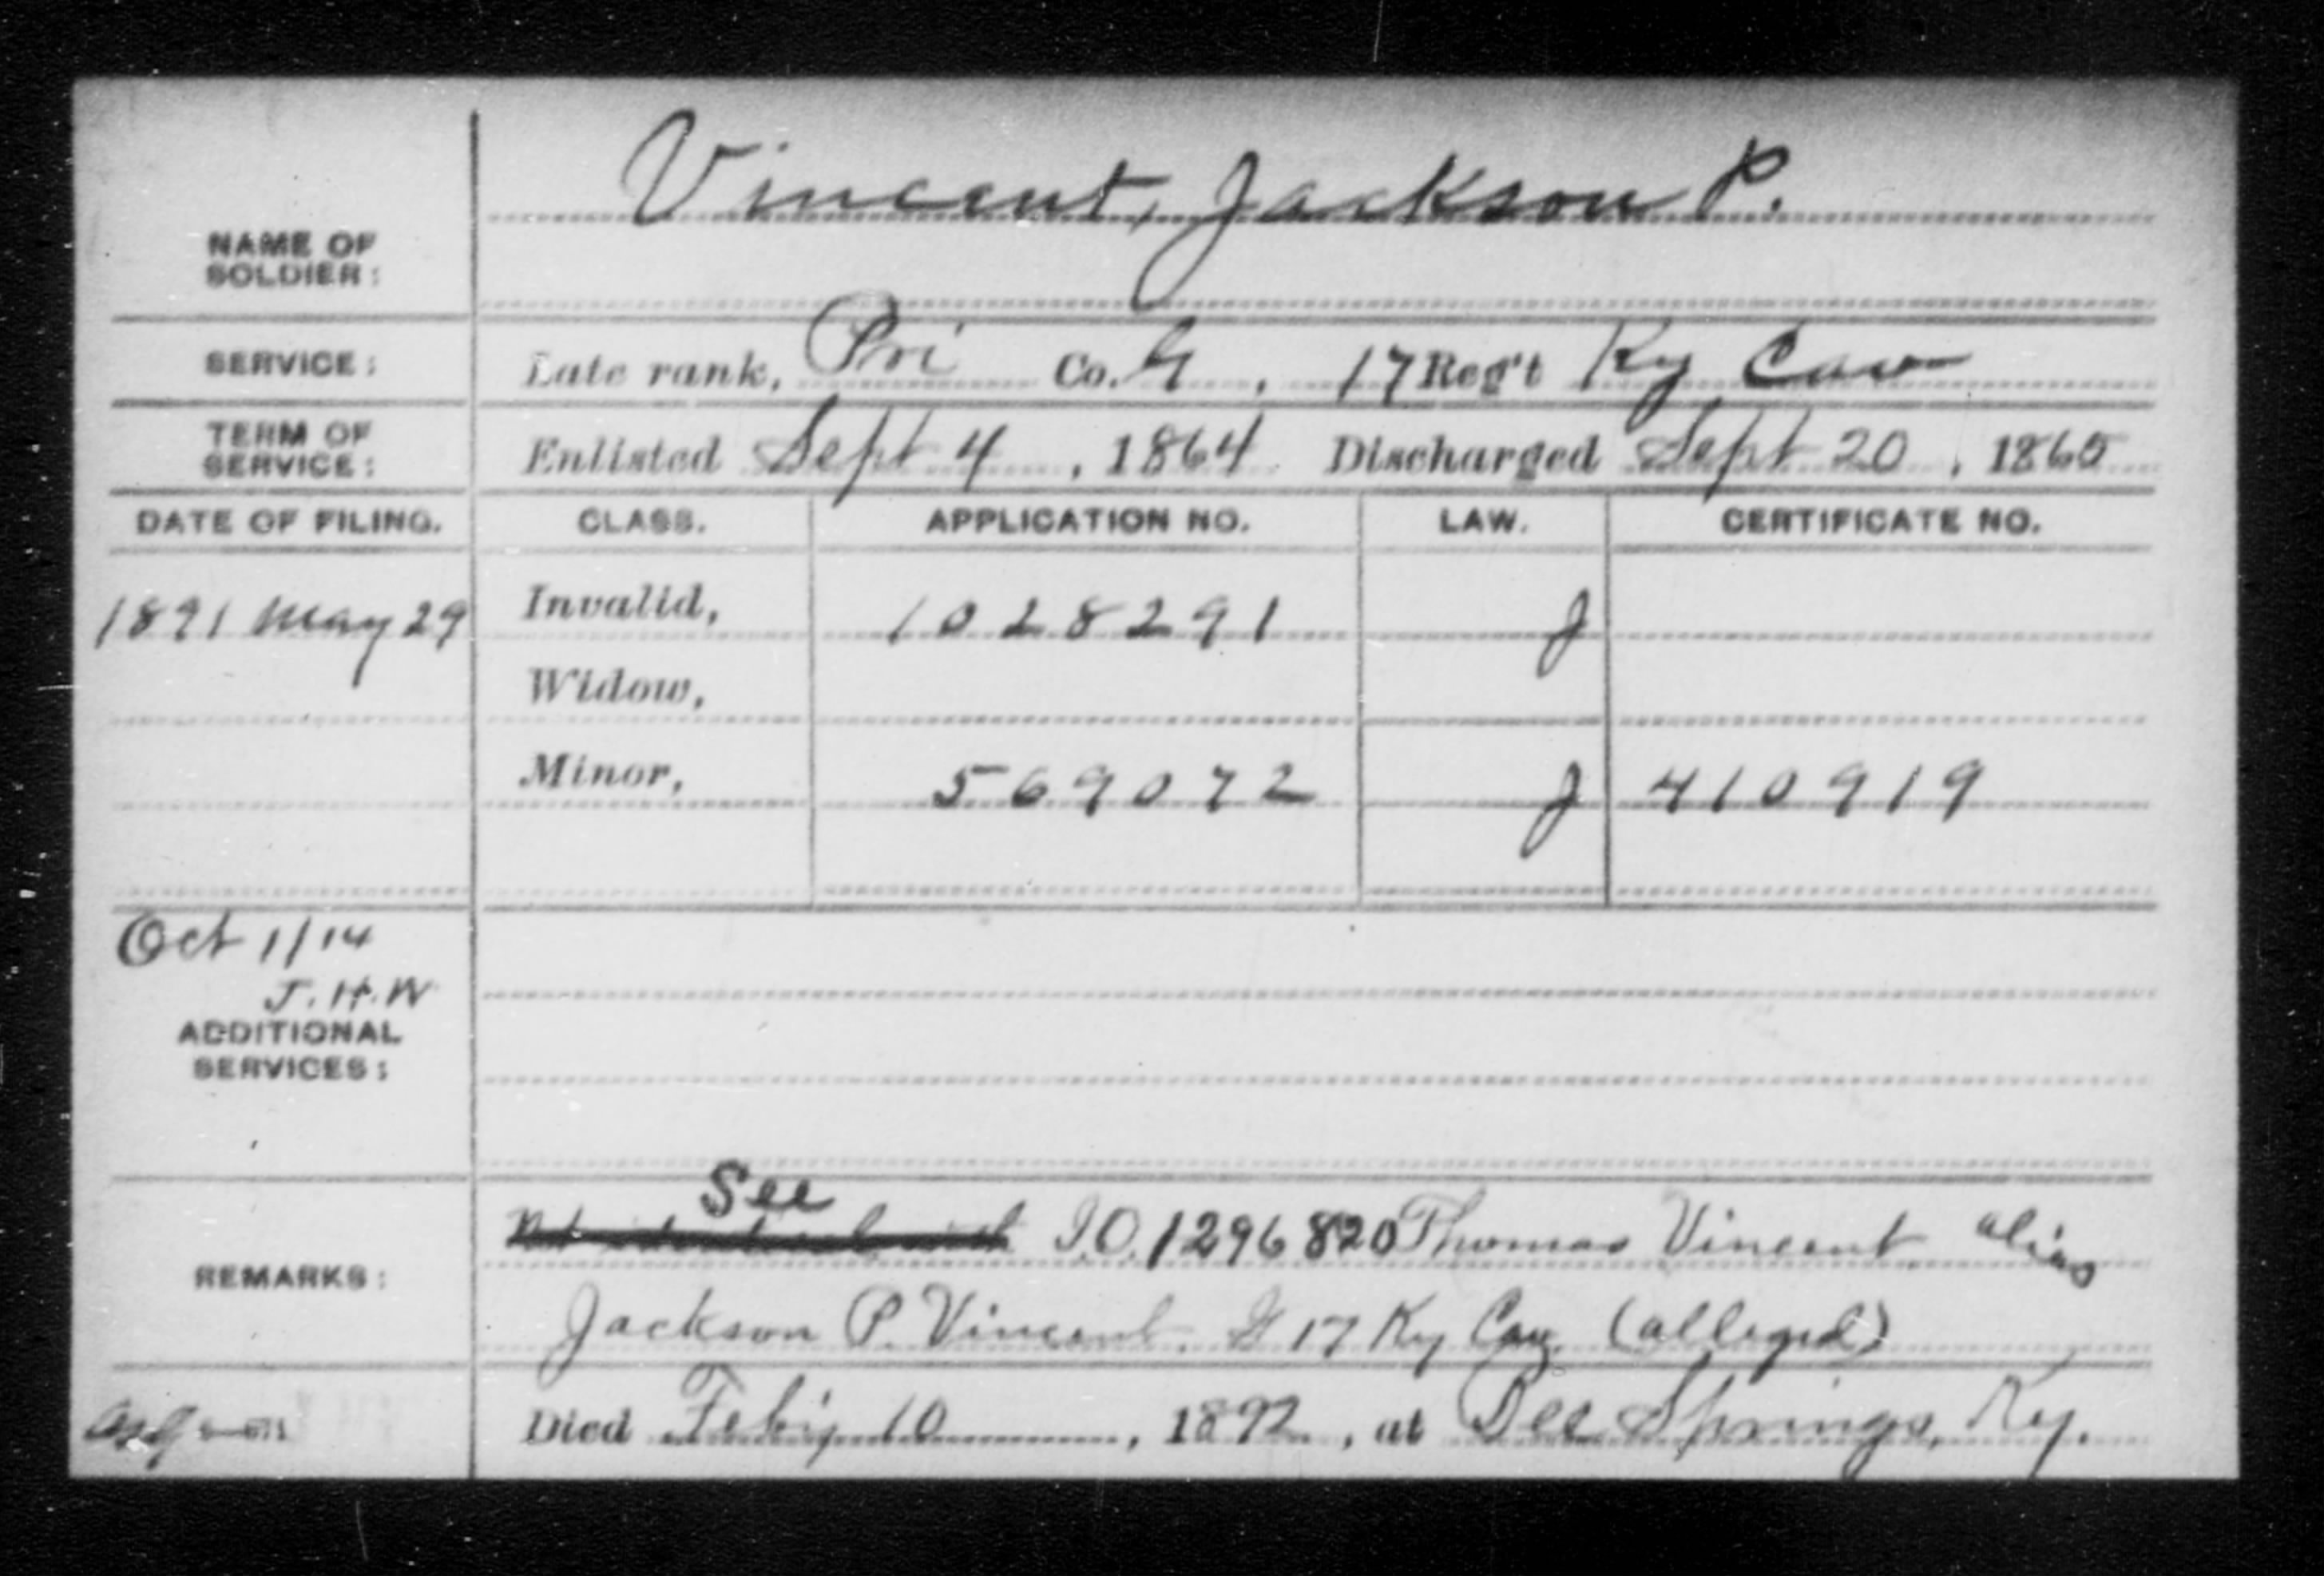 Vincent, Jackson P.
NAME OF
SOLDIER:
SERVICE: Late rank, Pri Co. G, 17 Reg't Ky Cav
TERM OF
SERVICE: Enlisted Sept 4, 1864 Discharged Sept 20, 1865
DATE OF FILING. CLASS. APPLICATION NO. LAW. CERTIFICATE NO.
1891 May 29 Invalid, 1028291 J
Widow,
Minor, 569072 J 410919
Oct 1/14
J.H.W
ADDITIONAL
SERVICES:
See
I.O. 1296820 Thomas Vincent alias
REMARKS:
Jackson P. Vincent. G 17 Ky Cav. (alleged)
Died Feb'y 10, 1892, at Bee Springs, Ky.